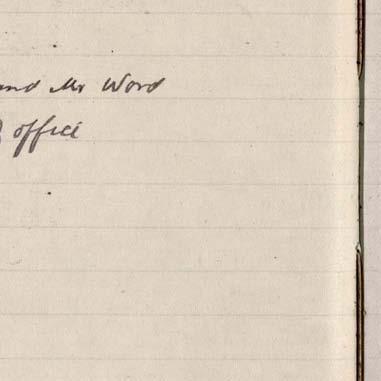 and Mr Word
office